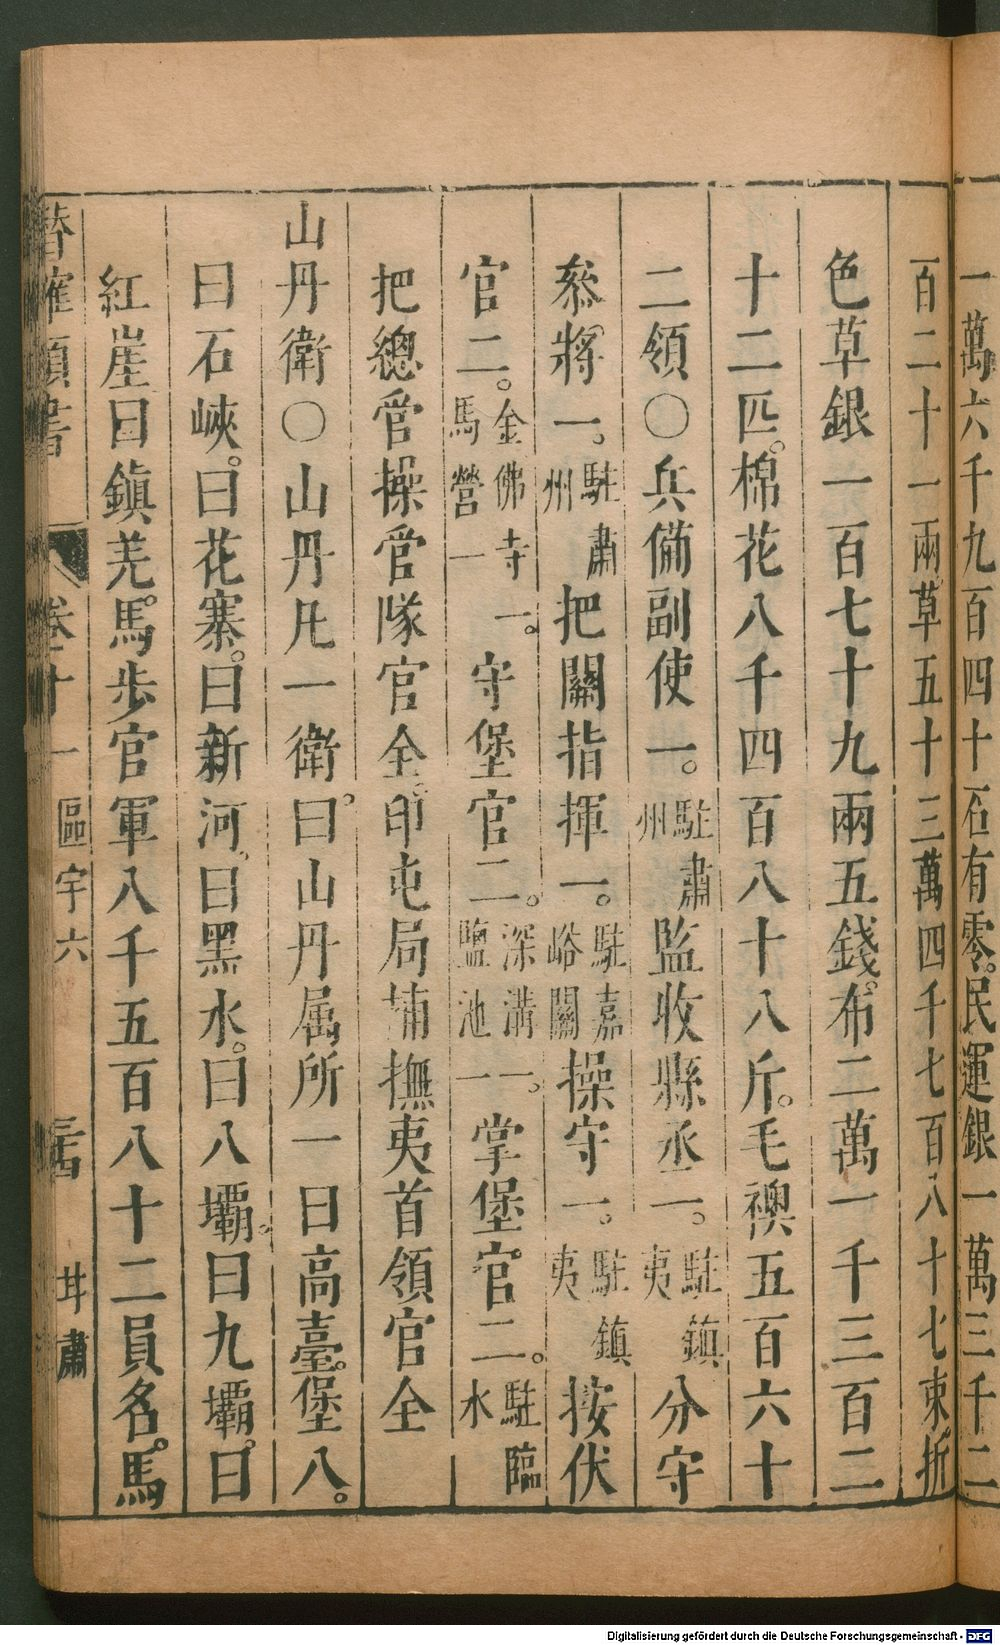 一萬六千九百四十石有零。民運銀一萬三千二
百二十一兩。草五十三萬四千七百八十七束。折
色草銀一百七十九兩五錢。布二萬一千三百二
十二匹。棉花八千四百八十八斤。毛襖五百六十
二領〇兵備副使一。駐肅州監收縣丞一。駐鎮夷分守
叅將一。駐肅州把關指揮一。駐嘉峪關操守一。駐鎮夷按伏
官二。金佛寺一。馬營一守堡官二。深溝一。鹽池一掌堡官二。駐臨水
把總管操管隊官全。印屯局捕撫夷首領官全
山丹衛〇山丹凡一衛。曰山丹属所一曰高臺。堡八。
曰石峽。曰花寨。曰新河。曰黑水。曰八壩。曰九壩。曰
紅崖曰鎮羌。馬步官軍八千五百八十二員名。馬
卷十一 區宇六 三十四 甘肅
Digitalisierung gefördert durch die Deutsche Forschungsgemeinschaft - DFG